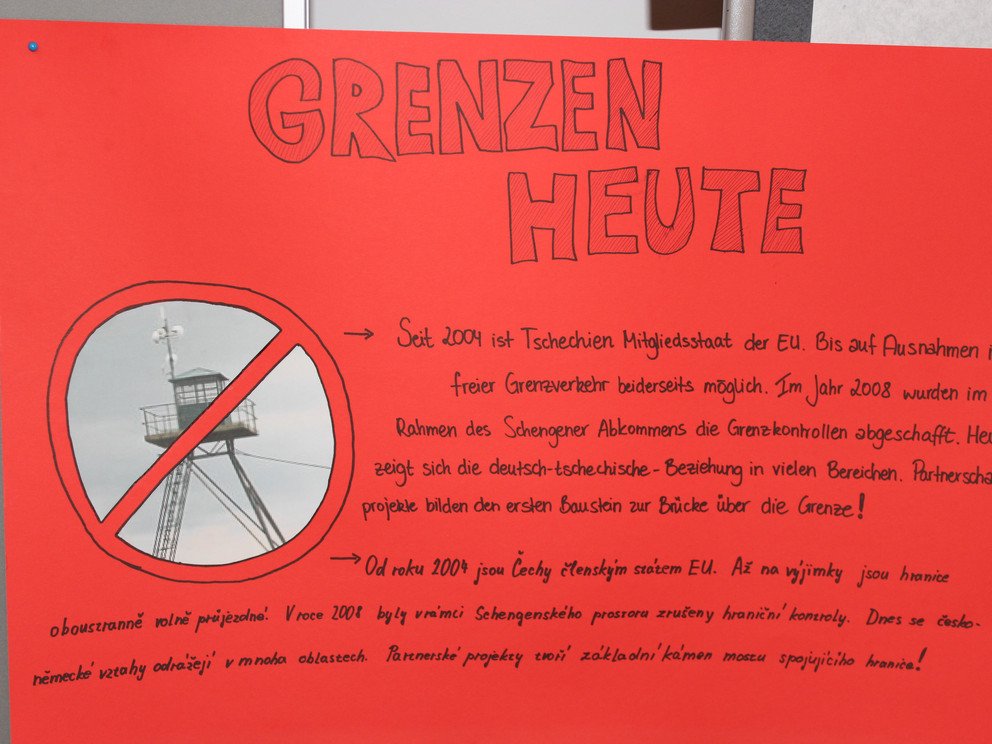 GRENZEN
HEUTE
→ Seit 2004 ist Tschechien Mitgliedsstaat der EU. Bis auf Ausnahmen
freier Grenzverkehr beiderseits möglich. Im Jahr 2008 wurden im
Rahmen des Schengener Abkommens die Grenzkontrollen abgeschafft.
zeigt sich die deutsch-tschechische-Beziehung in vielen Bereichen.
projekte bilden den ersten Baustein zur Brücke über die Grenze!
→ Od roku 2004 jsou Čechy členským státem EU. Až na výjimky jsou hranice
oboustranně volně průjezdné. V roce 2008 byly v rámci Schengenského prostoru zrušeny hraniční kontroly. Dnes se česko-
německé vztahy odrážejí v mnoha oblastech. Partnerské projekty tvoří základní kámen mostu spojujícího hranice!